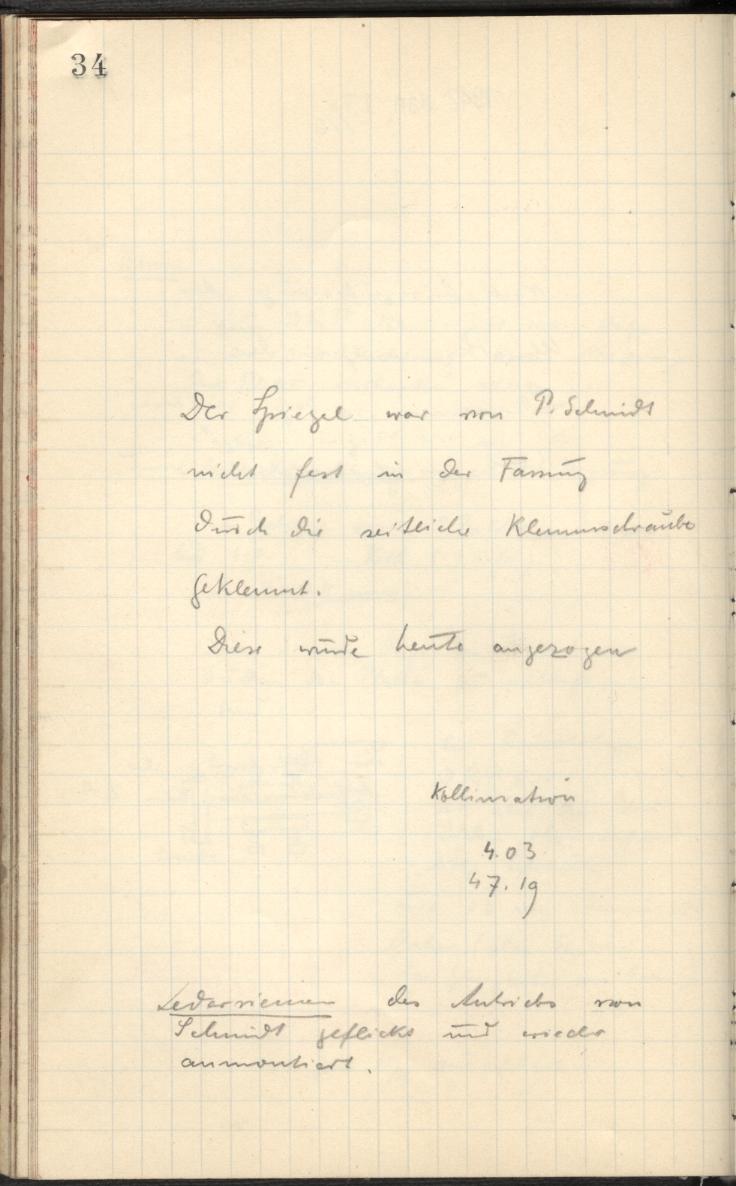 34
Der Spiegel war von P. Schmidt
nicht fest in der Fassung
durch die seitliche Klemmschraube
geklemmt.
Diese wurde heute angezogen
Kollimation
4.03
47.19
Lederriemen des Antriebs von
Schmidt geflickt und wieder
anmontiert.